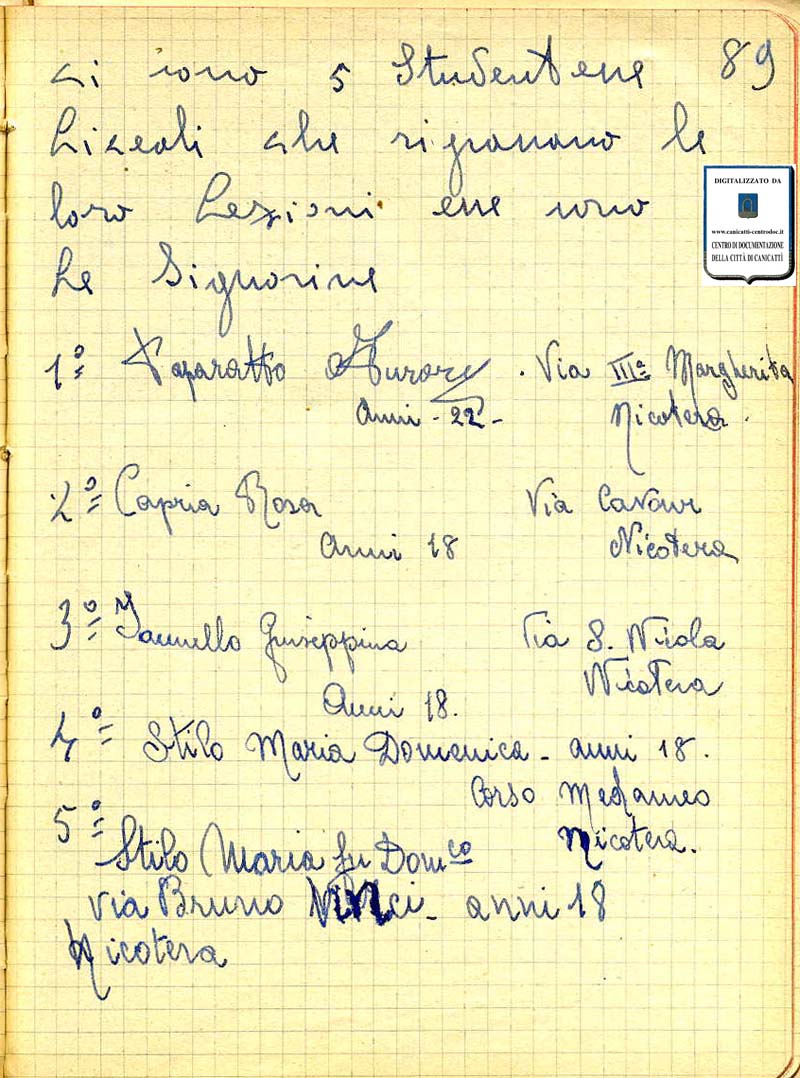 ci sono 5 Studentesse 89
Liceali che ripassano le
loro Lezioni esse sono
Le Signorine
DIGITALIZZATO DA
www.canicatti-centrodoc.it
CENTRO DI DOCUMENTAZIONE
DELLA CITTÀ DI CANICATTÌ
1º Paparatto Aurora . Via IIIª Margherita
Anni - 22 - Nicotera .
2º Capria Rosa Via Cavour
Anni 18 Nicotera
3º Iannello Giuseppina Via S. Nicola
Nicotera
Anni 18.
4º Stilo Maria Domenica - anni 18.
Corso
5º Nicotera.
Stilo Maria fu Domco
via Bruno Vinci - anni 18
Nicotera